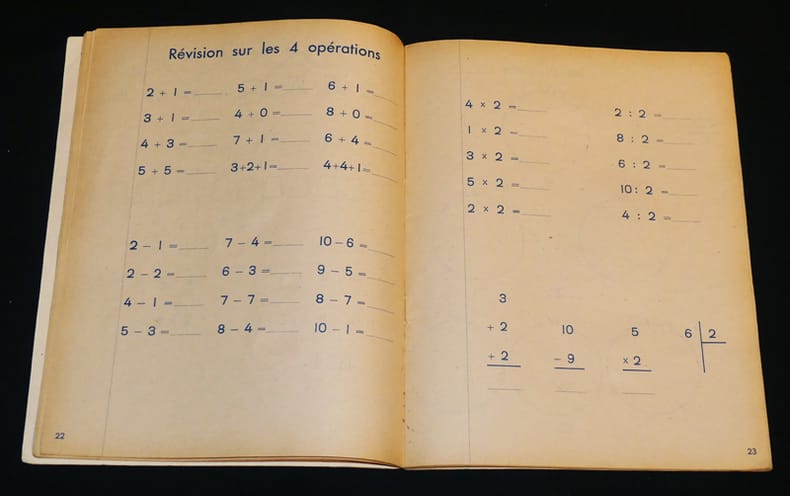 Révision sur les 4 opérations
2 + 1 = 5 + 1 = 6 + 1 =
3 + 1 = 4 + 0 = 8 + 0 =
4 + 3 = 7 + 1 = 6 + 4 =
5 + 5 = 3+2+1= 4+4+1=
2 – 1 = 7 – 4 = 10 – 6 =
2 – 2 = 6 – 3 = 9 – 5 =
4 – 1 = 7 – 7 = 8 – 7 =
5 – 3 = 8 – 4 = 10 – 1 =
22
4 × 2 = 2 : 2 =
1 × 2 = 8 : 2 =
3 × 2 = 6 : 2 =
5 × 2 = 10 : 2 =
2 × 2 = 4 : 2 =
3
+ 2 10 5 6 2
+ 2 – 9 × 2
23